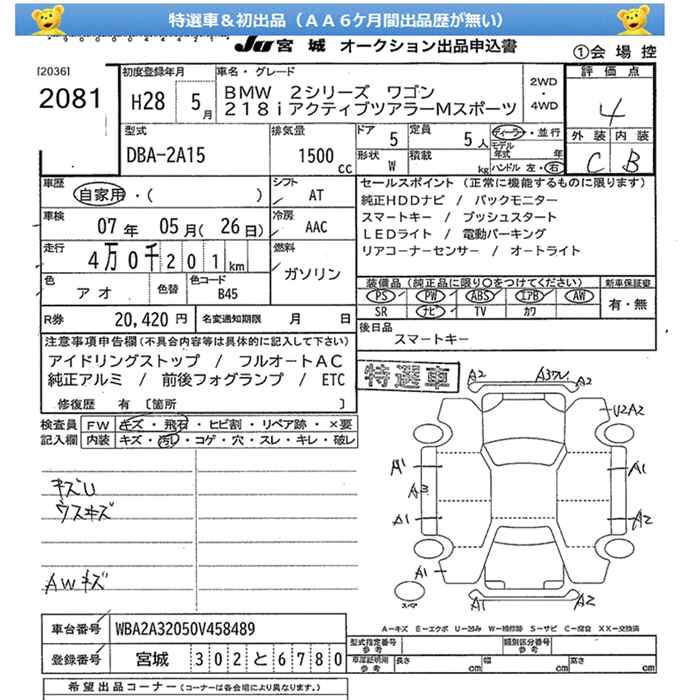 特選車＆初出品（ＡＡ６ケ月間出品歴が無い）
JU 宮城 オークション出品申込書
①会場控
[2036]
2081
初度登録年月
H28 5月
車名・グレード
BMW 2シリーズ ワゴン
218iアクティブツアラーMスポーツ
2WD
・
4WD
評価点
4
外装 内装
C B
型式
DBA-2A15
排気量
1500 cc
ドア 5
定員 5人
形状 W
積載 kg
ディーラー・並行
モデル年式 年
ハンドル 左・右
車歴
自家用・( )
シフト
AT
車検
07年 05月(26日)
冷房
AAC
走行
4万0千201km
燃料
ガソリン
色
アオ
色替
色コード
B45
R券 20,420円
名変通知期限 月 日
セールスポイント（正常に機能するものに限ります）
純正HDDナビ / バックモニター
スマートキー / プッシュスタート
LEDライト / 電動パーキング
リアコーナーセンサー / オートライト
装備品（純正品に限り○をつけてください）
新車保証書
PS PW ABS エアB AW
SR ナビ TV カワ
有・無
後日品
スマートキー
注意事項申告欄（不具合内容等は具体的に記入して下さい）
アイドリングストップ / フルオートAC
純正アルミ / 前後フォグランプ / ETC
修復歴 有〔箇所 〕
特選車
検査員
記入欄
FW キズ・飛石・ヒビ割・リペア跡・×要
内装 キズ・汚れ・コゲ・穴・スレ・キレ・破レ
キズU
ウスキズ
AWキズ
A2
A2
U2A2
A1
A1
A1
A2
A1
A1
A2
A－キズ E－エクボ U－凹み W－補修跡 S－サビ C－腐食 XX－交換済
車台番号 WBA2A32050V458489
登録番号 宮城 302と6780
型式指定番号
参考
類別区分番号
参考
車庫証明用
参考
長さ cm 幅 cm 高さ cm
希望出品コーナー（コーナーは各会場により異なります。）